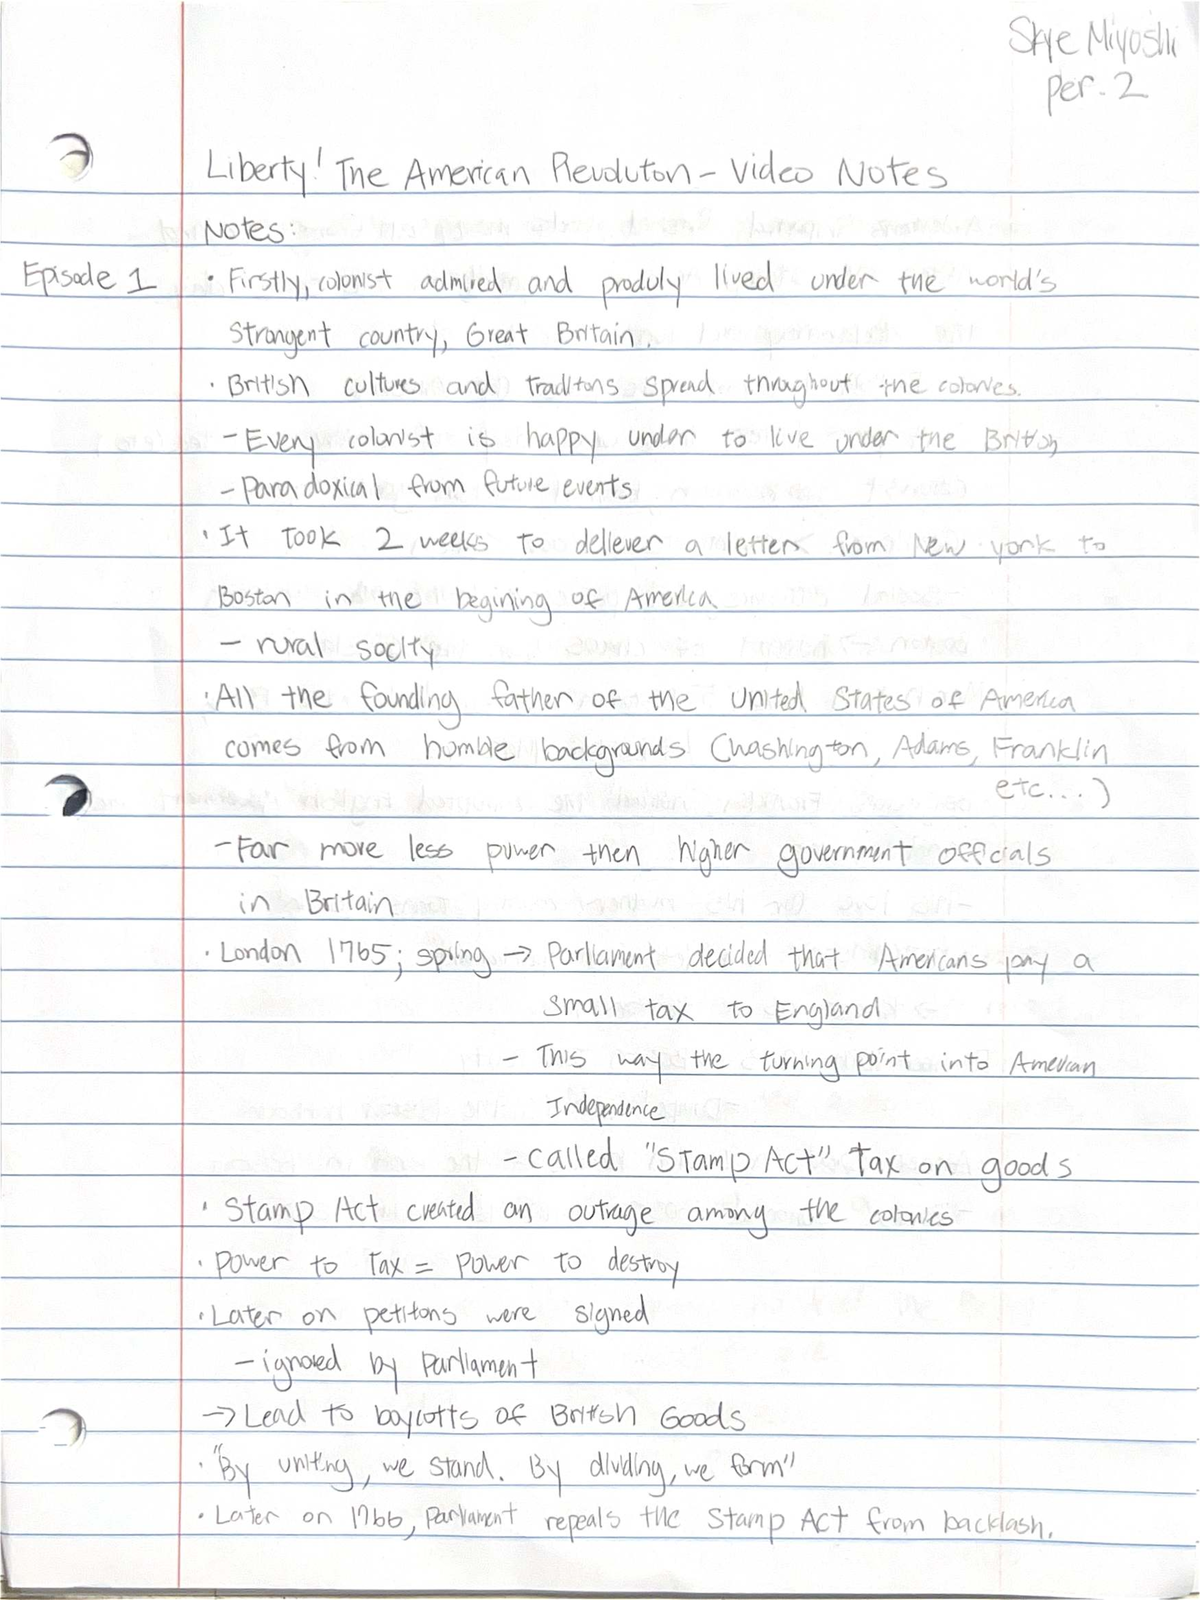 Skye Miyoshi
per. 2
Liberty! The American Revoluton - Video Notes
Notes:
Episode 1
• Firstly, colonist admired and produly lived under the world's
Strongent country, Great Britain.
• British cultures and traditons spread throughout the colonies.
- Every colonist is happy under to live under the British
- Paradoxical from future events
• It took 2 weeks to deliever a letter from New york to
Boston in the begining of America
- rural socity
• All the founding father of the United States of America
comes from humble backgrounds (Washington, Adams, Franklin
etc...)
- Far more less power then higher government officials
in Britain
• London 1765; spring → Parliament decided that Americans pay a
small tax to England
- This way the turning point into American
Independence
- called "Stamp Act" Tax on goods
• Stamp Act created an outrage among the colonies
• Power to Tax = Power to destroy
• Later on petitons were signed
- ignored by Parliament
→ Lead to boycotts of British Goods
• "By uniting, we stand. By dividing, we form"
• Later on 1766, Parliament repeals the Stamp Act from backlash.